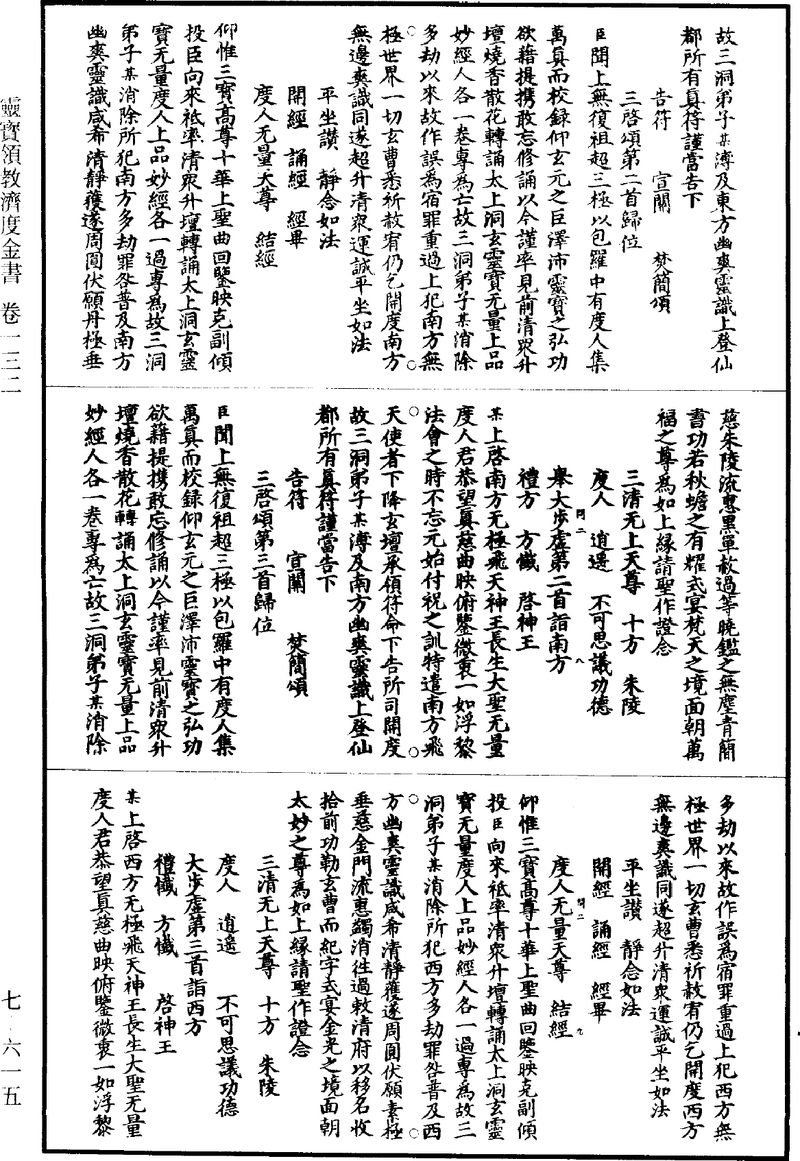 故三洞弟子某溥及東方幽爽靈識上登仙
都所有眞符謹當告下
告符　宣關　焚簡頌
三啓頌第二首歸位
臣聞上無復祖超三極以包羅中有度人集
萬眞而校録仰玄元之巨澤沛靈寶之弘功
欲藉提携敢忘修誦以今謹率見前清衆升
壇燒香散花轉誦太上洞玄靈寶无量上品
妙經人各一卷專爲亡故三洞弟子某消除
多劫以來故作誤爲宿罪重過上犯南方無
極世界一切玄曹悉祈赦宥仍乞開度南方
無邊爽識同遂超升清衆運誠平坐如法
平坐讃　靜念如法
開經　誦經　經畢
度人无量天尊　結經
仰惟三寶高尊十華上聖曲回鑒映克副傾
投臣向來祇率清衆升壇轉誦太上洞玄靈
寶无量度人上品妙經各一過專爲故三洞
弟子某消除所犯南方多劫罪咎普及南方
幽爽靈識咸希清靜獲遂周圓伏願丹極垂
慈朱陵流惠黑單赦過等曉鑑之無塵青簡
書功若秋蟾之有耀式宴梵天之境面朝萬
福之尊爲如上緣請聖作證念
三清无上天尊　十方　朱陵
度人　逍遥　不可思議功德
舉大步虚第二首詣南方
禮方　方懺　啓神王
某上啓南方无極飛天神王長生大聖无量
度人君恭望眞慈曲映俯鑒微衷一如浮黎
法會之時不忘元始付祝之訓特遣南方飛
天使者下降玄壇承領符命下告所司開度
故三洞弟子某溥及南方幽爽靈識上登仙
都所有眞符謹當告下
告符　宣關　焚簡頌
三啓頌第三首歸位
臣聞上無復祖超三極以包羅中有度人集
萬眞而校録仰玄元之巨澤沛靈寶之弘功
欲藉提携敢忘修誦以今謹率見前清衆升
壇燒香散花轉誦太上洞玄靈寶无量上品
妙經人各一卷專爲亡故三洞弟子某消除
多劫以來故作誤爲宿罪重過上犯西方無
極世界一切玄曹悉祈赦宥仍乞開度西方
無邊爽識同遂超升清衆運誠平坐如法
平坐讃　靜念如法
開經　誦經　經畢
度人无量天尊　結經
仰惟三寶高尊十華上聖曲回鑒映克副傾
投臣向來祇率清衆升壇轉誦太上洞玄靈
寶无量度人上品妙經人各一過專爲故三
洞弟子某消除所犯西方多劫罪咎普及西
方幽爽靈識咸希清靜獲遂周圓伏願素極
垂慈金門流惠蠲消徃過敕清府以移名收
拾前功勒玄曹而紀字式宴金光之境面朝
太妙之尊爲如上緣請聖作證念
三清无上天尊　十方　朱陵
度人　逍遥　不可思議功德
大步虚第三首詣西方
禮懺　方懺　啓神王
某上啓西方无極飛天神王長生大聖无量
度人君恭望眞慈曲映俯鑒微衷一如浮黎
靈寶領教濟度金書　卷一三二
七－六一五